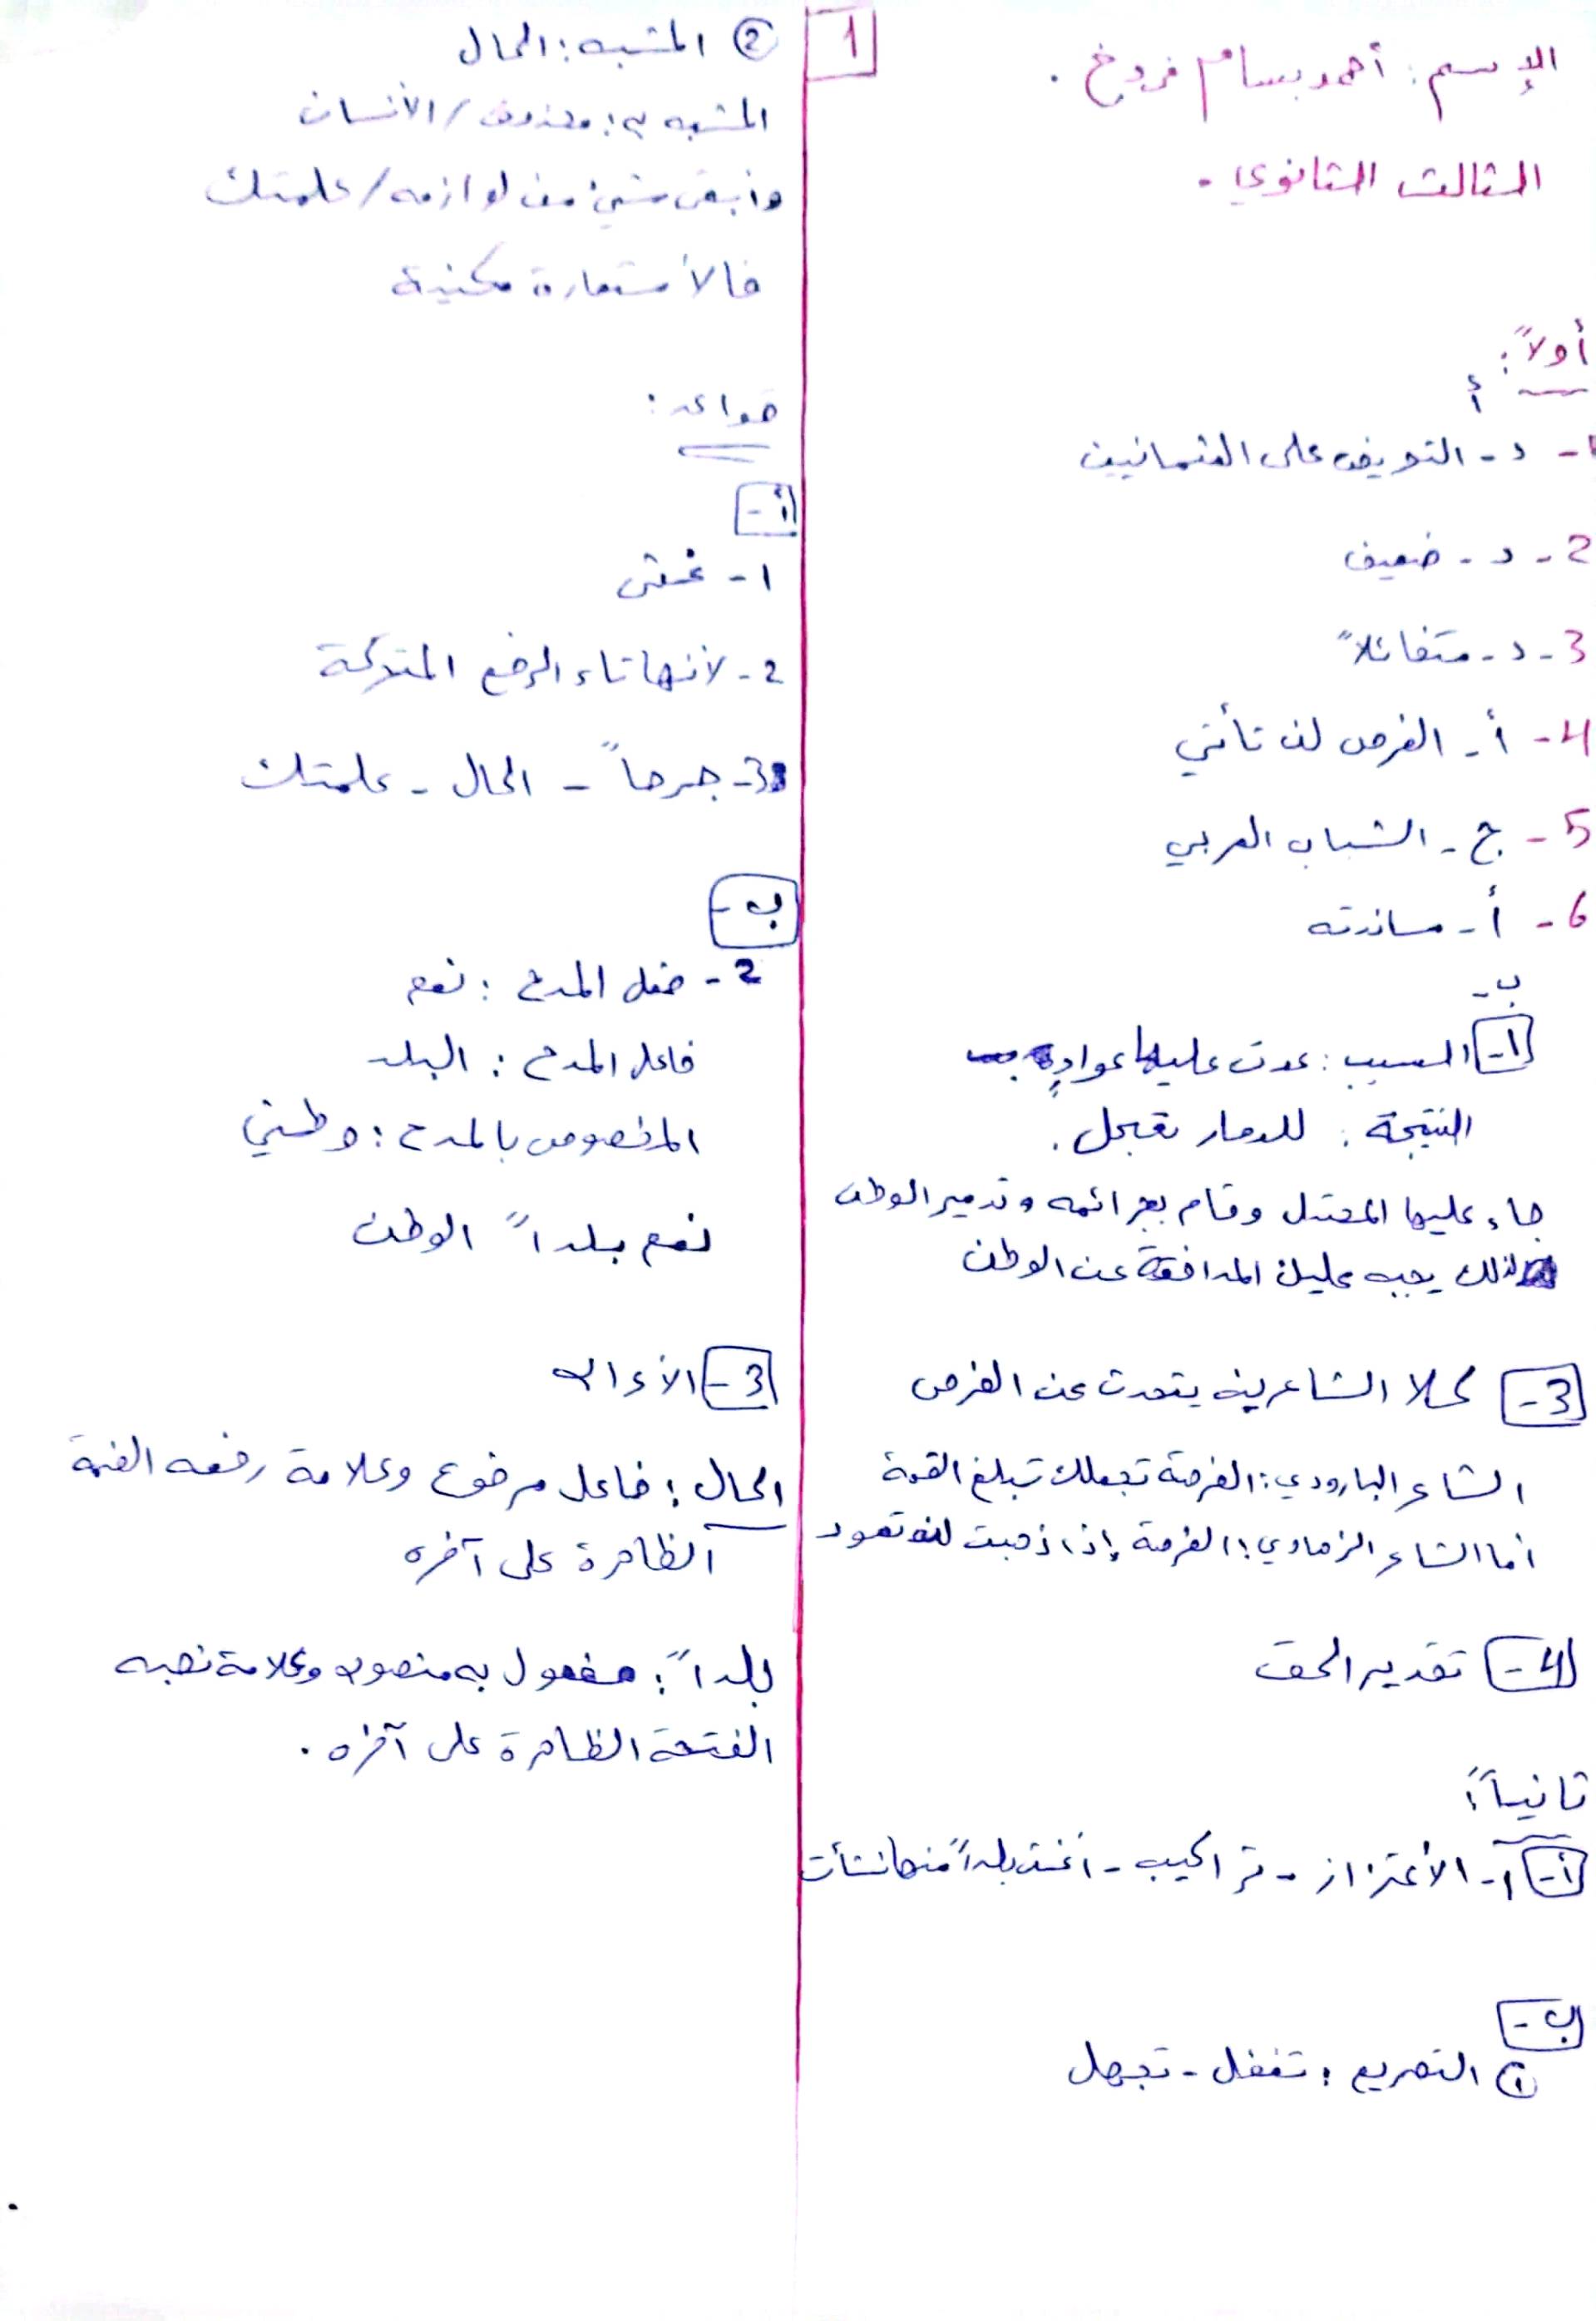 1
الإسم: أحمد بسام فروخ.
الثالث الثانوي.
أولاً:
أ
1- د- التحريض على العثمانيين
2- د- ضعيف
3- د- متفائلاً
4- أ- الفرص لن تأتي
5- ج- الشباب العربي
6- أ- مساندته
ب-
1- السبب: عدت عليها عوادٍ
النتيجة: للدمار تعجل.
جاء عليها المحتل وقام بجرائمه وتدمير الوطن
لذلك يجب عليك المدافعة عن الوطن
3- كلا الشاعرين يتحدث عن الفرص
الشاعر البارودي: الفرصة تجعلك تبلغ القمة
أما الشاعر الزهاوي: الفرصة إذا ذهبت لن تعود
4- تقدير الحق
ثانياً:
أ- 1- الأعتزاز - تراكيب - أغث بلداً منها نشأت
ب-
1 التصريع: تغفل - تجهل
2 المشبه: الحال
المشبه به: محذوف / الأنسان
وأبقى شيئ من لوازمه / علمتك
فالأستعارة مكنية
قواعد:
أ-
1- غنتى
2- لأنها تاء الرفع المتحركة
3- جرحاً - الحال - علمتك
ب-
2- فعل المدح: نعم
فاعل المدح: البلد
المخصوص بالمدح: وطني
نعم بلداً الوطن
3- الأعراب
الحال: فاعل مرفوع وعلامة رفعه الضمة
الظاهرة على آخره
بلداً: مفعول به منصوب وعلامة نصبه
الفتحة الظاهرة على آخره.